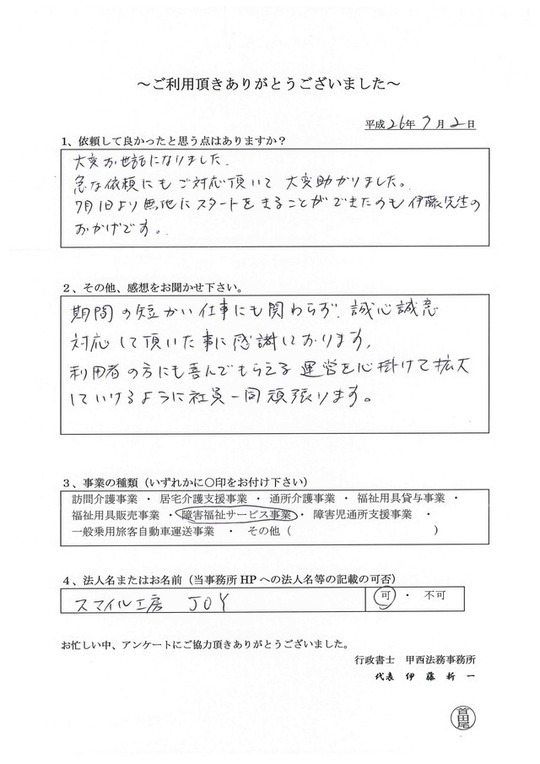 ～ご利用頂きありがとうございました～
平成26年7月2日
1、依頼して良かったと思う点はありますか？
大変お世話になりました。
急な依頼にもご対応頂いて 大変助かりました。
7月1日より無地にスタートをきることができたのも伊藤先生の
おかげです。
2、その他、感想をお聞かせ下さい。
期間の短かい仕事にも関わらず、誠心誠意
対応して頂いた事に感謝しております。
利用者の方にも喜んでもらえる運営を心掛けて拡大
していけるように社員一同頑張ります。
3、事業の種類（いずれかに〇印をお付け下さい）
訪問介護事業 ・ 居宅介護支援事業 ・ 通所介護事業 ・ 福祉用具貸与事業 ・
福祉用具販売事業 ・ 障害福祉サービス事業 ・ 障害児通所支援事業 ・
一般乗用旅客自動車運送事業 ・ その他（ ）
4、法人名またはお名前（当事務所HPへの法人名等の記載の可否）
スマイル工房 JOY 可 ・ 不可
お忙しい中、アンケートにご協力頂きありがとうございました。
行政書士 甲西法務事務所
代表 伊藤新一